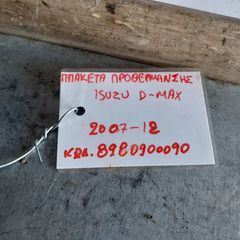 ΠΛΑΚΕΤΑ ΠΡΟΘΕΡΜΑΝΣΗΣ
ISUZU D-MAX
2007-12
ΚΩΔ. 8980900090